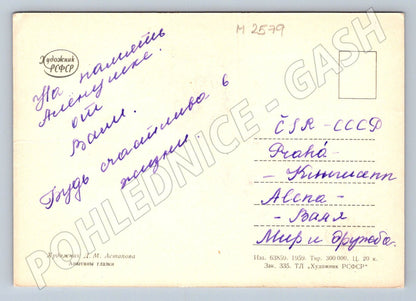 M 2579
Художник
РСФСР
На память
Алёнушке.
от
Вали.
Будь счастлива в
жизни
ČSR - СССР
Praha -
- Кингисепп
Alena -
- Валя
Мир и дружба.
Художник Л. М. Астапова
Изд. 63859. 1959. Тир. 300 000. Ц. 20 к.
Зак. 335. ТЛ „Художник РСФСР"
POHLEDNICE - GASH